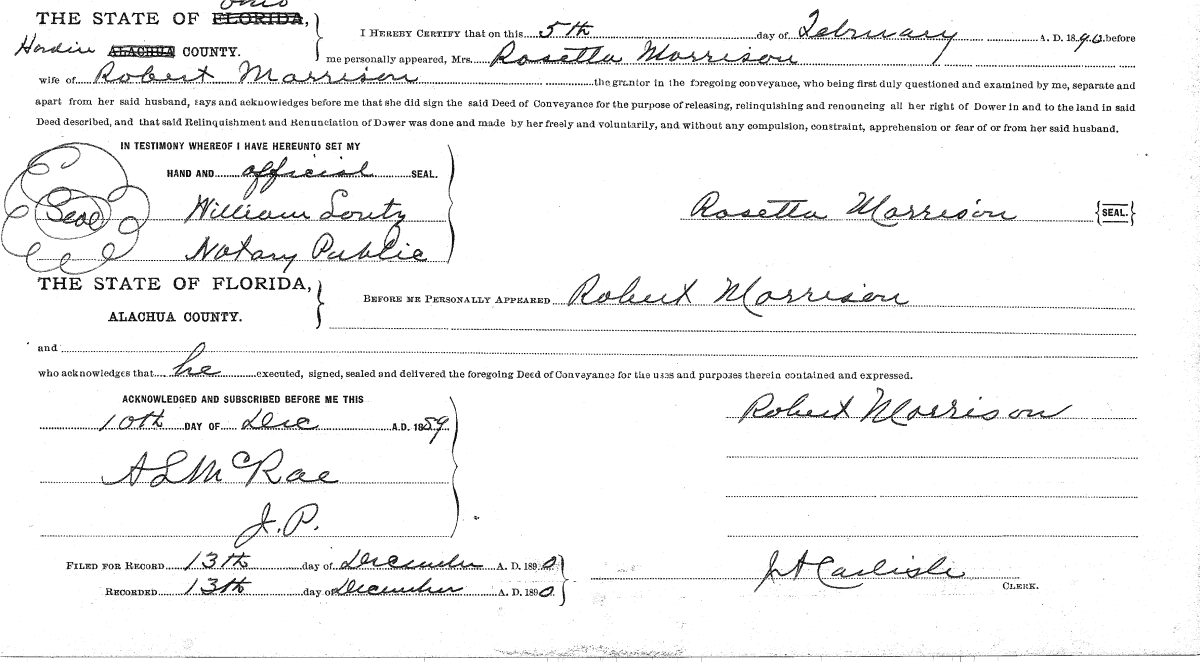 Ohio
THE STATE OF FLORIDA,
Hardin ALACHUA COUNTY.
I HEREBY CERTIFY that on this 5th day of February A. D. 1890. before
me personally appeared, Mrs. Rosetta Morrison
wife of Robert Morrison the grantor in the foregoing conveyance, who being first duly questioned and examined by me, separate and
apart from her said husband, says and acknowledges before me that she did sign the said Deed of Conveyance for the purpose of releasing, relinquishing and renouncing all her right of Dower in and to the land in said
Deed described, and that said Relinquishment and Renunciation of Dower was done and made by her freely and voluntarily, and without any compulsion, constraint, apprehension or fear of or from her said husband.
IN TESTIMONY WHEREOF I HAVE HEREUNTO SET MY
HAND AND official SEAL.
Seal William Loutz
Rosetta Morrison {SEAL.}
Notary Public
THE STATE OF FLORIDA,
ALACHUA COUNTY.
BEFORE ME PERSONALLY APPEARED Robert Morrison
and
who acknowledges that he executed, signed, sealed and delivered the foregoing Deed of Conveyance for the uses and purposes therein contained and expressed.
ACKNOWLEDGED AND SUBSCRIBED BEFORE ME THIS
10th DAY OF Dec A.D. 1889.
Robert Morrison
A L McRae
J. P.
FILED FOR RECORD 13th day of December A. D. 1890
RECORDED 13th day of December A. D. 1890.
J A Carlisle
CLERK.